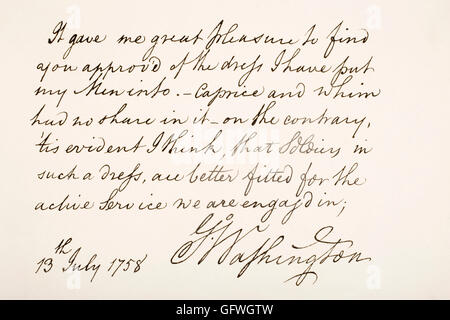 It gave me great pleasure to find
you approv'd of the dress I have put
my Men into. – Caprice and whim
had no share in it – on the contrary,
'tis evident I think, that Soldiers in
such a dress, are better fitted for the
active service we are engag'd in;
G. Washington
13th July 1758
alamy
Image ID: GFWGTW
www.alamy.com